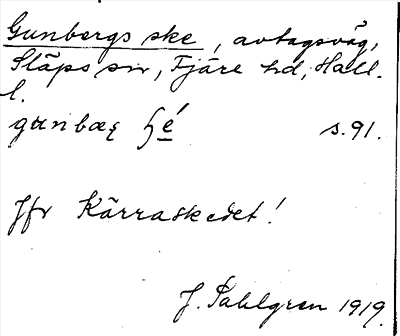 Gunbergs ske, avtagsväg,
Släps sn, Fjäre hd, Hall.
l.
gunbæg ɧé s. 91.
Jfr Kärraskedet!
J. Sahlgren 1919.